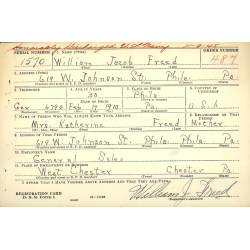 Honorably Discharged U.S. Army 11-9-45
SERIAL NUMBER 1. NAME (Print) ORDER NUMBER
1570 William Jacob Freed 487
2. ADDRESS (Print)
619 W. Johnson St. Phila. Pa.
3. TELEPHONE 4. AGE IN YEARS 5. PLACE OF BIRTH 6. COUNTRY OF CITIZENSHIP
30 Phila
DATE OF BIRTH
Ger 6790 Feb 17 1910 Pa U.S.A
7. NAME OF PERSON WHO WILL ALWAYS KNOW YOUR ADDRESS 8. RELATIONSHIP OF THAT PERSON
Mrs. Katherine Freed Mother
9. ADDRESS OF THAT PERSON
619 W. Johnson St. Phila Pa.
10. EMPLOYER'S NAME
General Sales
11. PLACE OF EMPLOYMENT OR BUSINESS
West Chester Chester Pa
I AFFIRM THAT I HAVE VERIFIED ABOVE ANSWERS AND THAT THEY ARE TRUE.
REGISTRATION CARD
D. S. S. FORM 1
William J. Freed